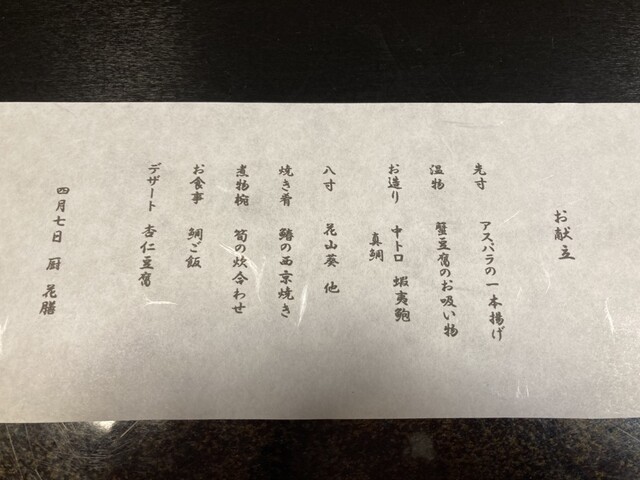 お献立
先寸 アスパラの一本揚げ
温物 蟹豆腐のお吸い物
お造り 中トロ 蝦夷鮑
真鯛
八寸 花山葵 他
焼き肴 鰆の西京焼き
煮物椀 筍の炊合わせ
お食事 鯛ご飯
デザート 杏仁豆腐
四月七日 厨 花膳